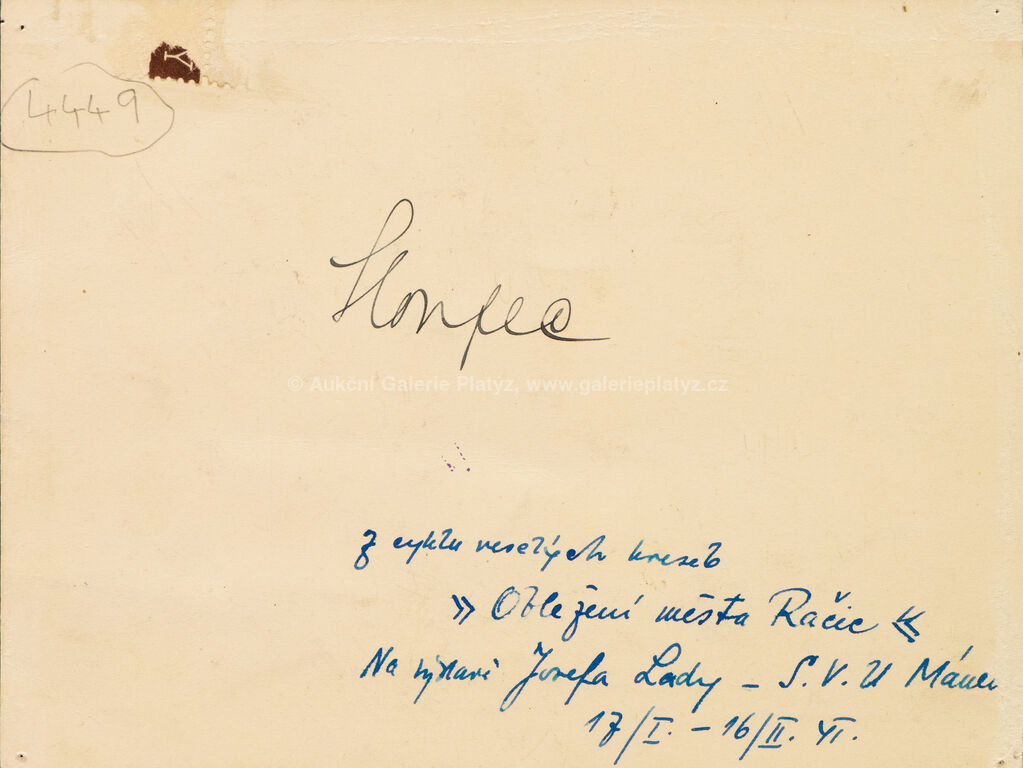 4449
© Aukční Galerie Platyz, www.galerieplatyz.cz
Z cyklu veselých kreseb
» Obležení města Račic «
Na výstavě Josefa Lady – S.V.U Mánes
17/I. – 16/II.